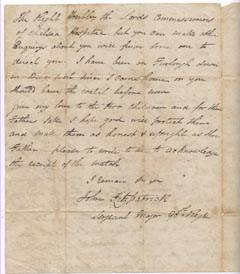 The Right Honble the Lords Commissioners
of Chelsea Hospital but you can make
Enquiry about you
direct you. I have been on Furlough down
in since I came home or you
should have the watch before now
give my love to the two children and for their
Fathers sake I hope god will protect them
and make them as honest & upright as their
Father. please to write to me to acknowledge
the receipt of the watch
I remain
John Fitzpatrick
Sergeant Major